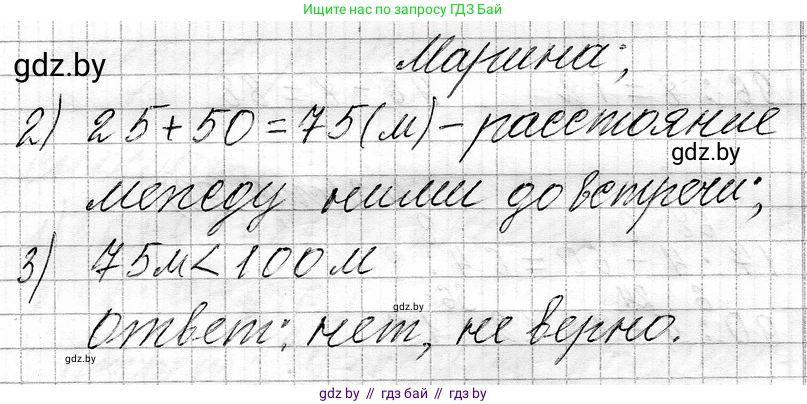 Ищите нас по запросу ГДЗ Бай
gdz.by
Марина;
2) 25+50=75(м) – расстояние
gdz.by
между ними до встречи;
3) 75м < 100м
gdz.by
ответ: нет, не верно.
gdz.by
gdz.by // гдз бай // гдз by